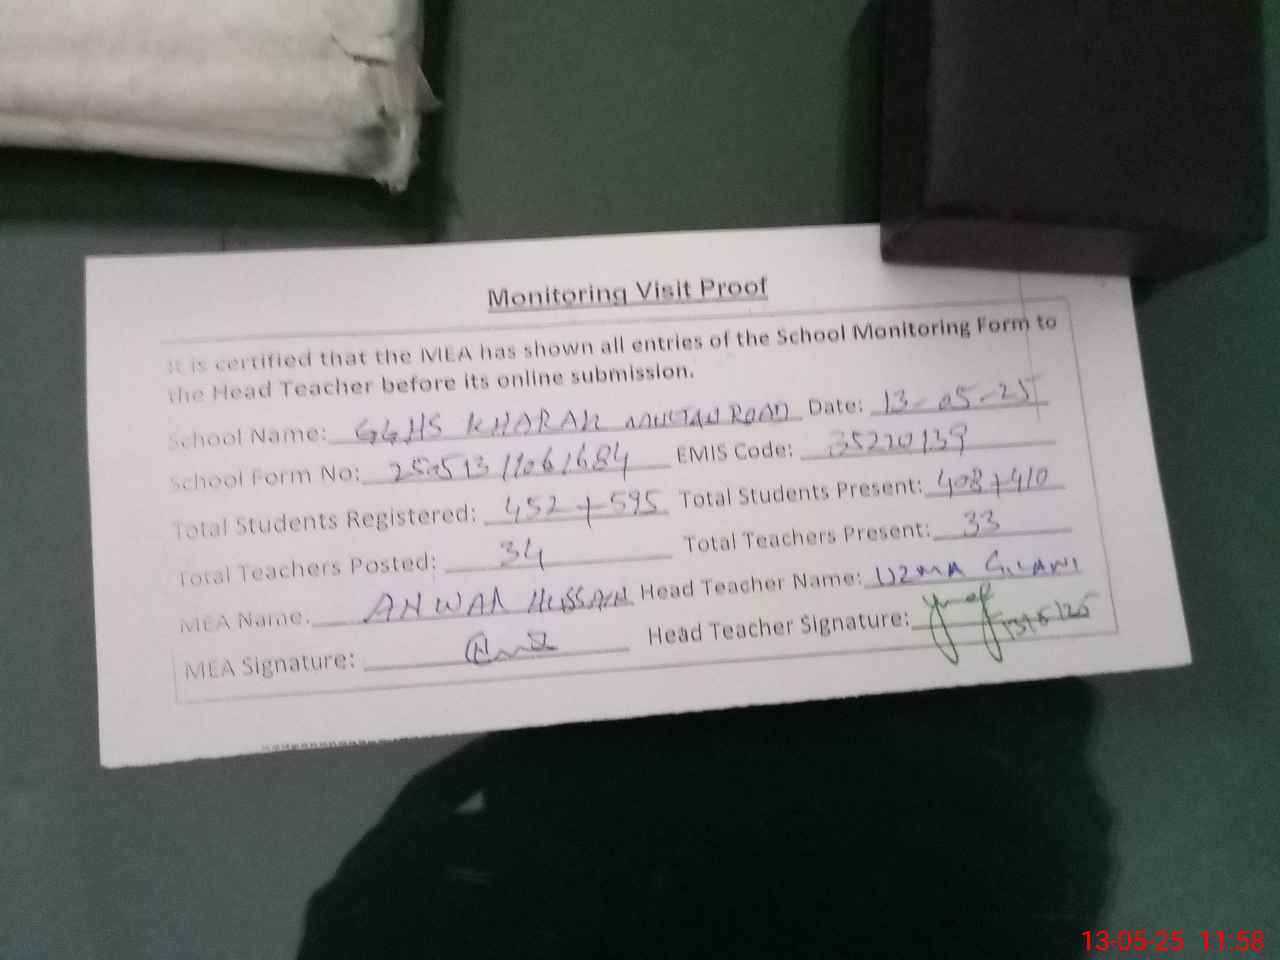 Monitoring Visit Proof
It is certified that the MEA has shown all entries of the School Monitoring Form to
the Head Teacher before its online submission.
School Name: GGHS KHARAK MULTAN ROAD Date: 13-05-25
School Form No: EMIS Code: 35220139
Total Students Registered: 452+595 Total Students Present: 408+410
Total Teachers Posted: 34 Total Teachers Present: 33
MEA Name: ANWAR HUSSAIN Head Teacher Name: UZMA GILANI
MEA Signature: Head Teacher Signature:
13-05-25 11:58